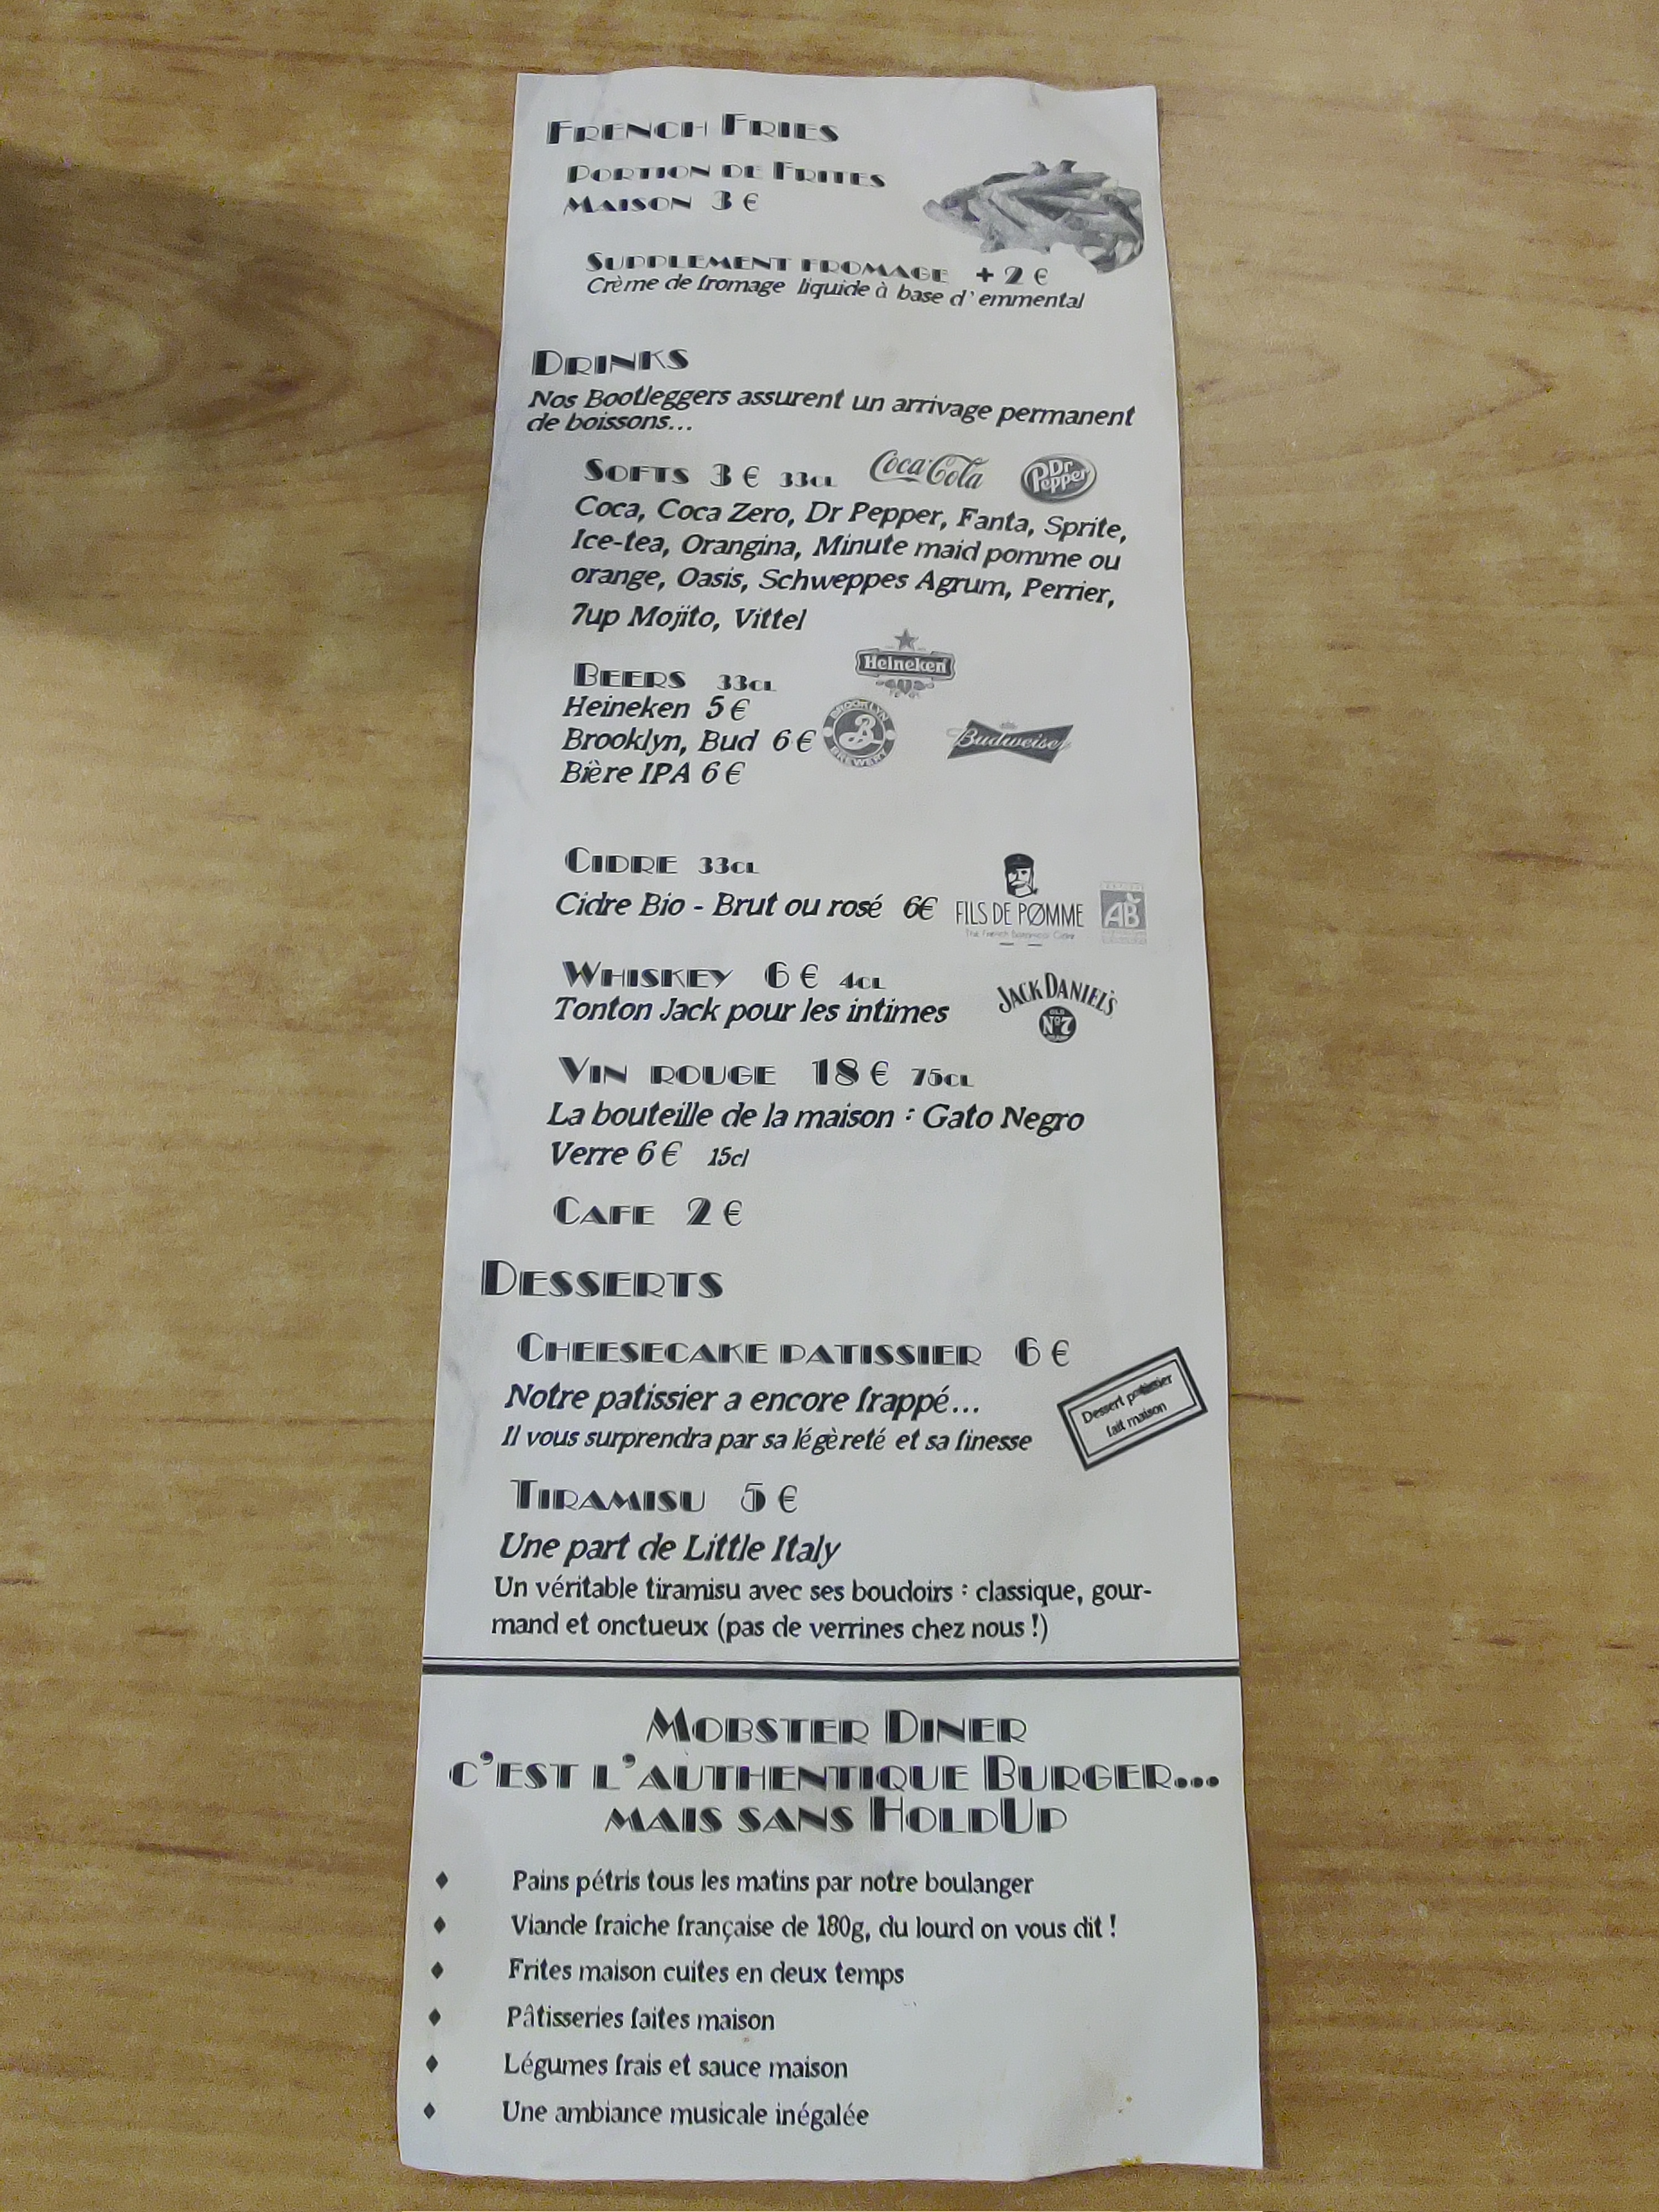 French Fries
Portion de Frites
Maison 3 €
Supplement fromage + 2 €
Crème de fromage liquide à base d' emmental
Drinks
Nos Bootleggers assurent un arrivage permanent
de boissons...
Softs 3 € 33cl
Coca-Cola
Dr Pepper
Coca, Coca Zero, Dr Pepper, Fanta, Sprite,
Ice-tea, Orangina, Minute maid pomme ou
orange, Oasis, Schweppes Agrum, Perrier,
7up Mojito, Vittel
Heineken
Beers 33cl
Heineken 5 €
Brooklyn, Bud 6 €
Brooklyn B Brewery
Budweiser
Bière IPA 6 €
Cidre 33cl
Cidre Bio - Brut ou rosé 6€
FILS DE PØMME
AB
Whiskey 6 € 4cl
Tonton Jack pour les intimes
JACK DANIEL'S
OLD
Nº7
Vin rouge 18 € 75cl
La bouteille de la maison : Gato Negro
Verre 6 € 15cl
Cafe 2 €
Desserts
Cheesecake patissier 6 €
Notre patissier a encore frappé...
Il vous surprendra par sa légèreté et sa finesse
Dessert patissier
fait maison
Tiramisu 5 €
Une part de Little Italy
Un véritable tiramisu avec ses boudoirs : classique, gour-
mand et onctueux (pas de verrines chez nous !)
Mobster Diner
c'est l'authentique Burger...
mais sans HoldUp
♦ Pains pétris tous les matins par notre boulanger
♦ Viande fraiche française de 180g, du lourd on vous dit !
♦ Frites maison cuites en deux temps
♦ Pâtisseries faites maison
♦ Légumes frais et sauce maison
♦ Une ambiance musicale inégalée